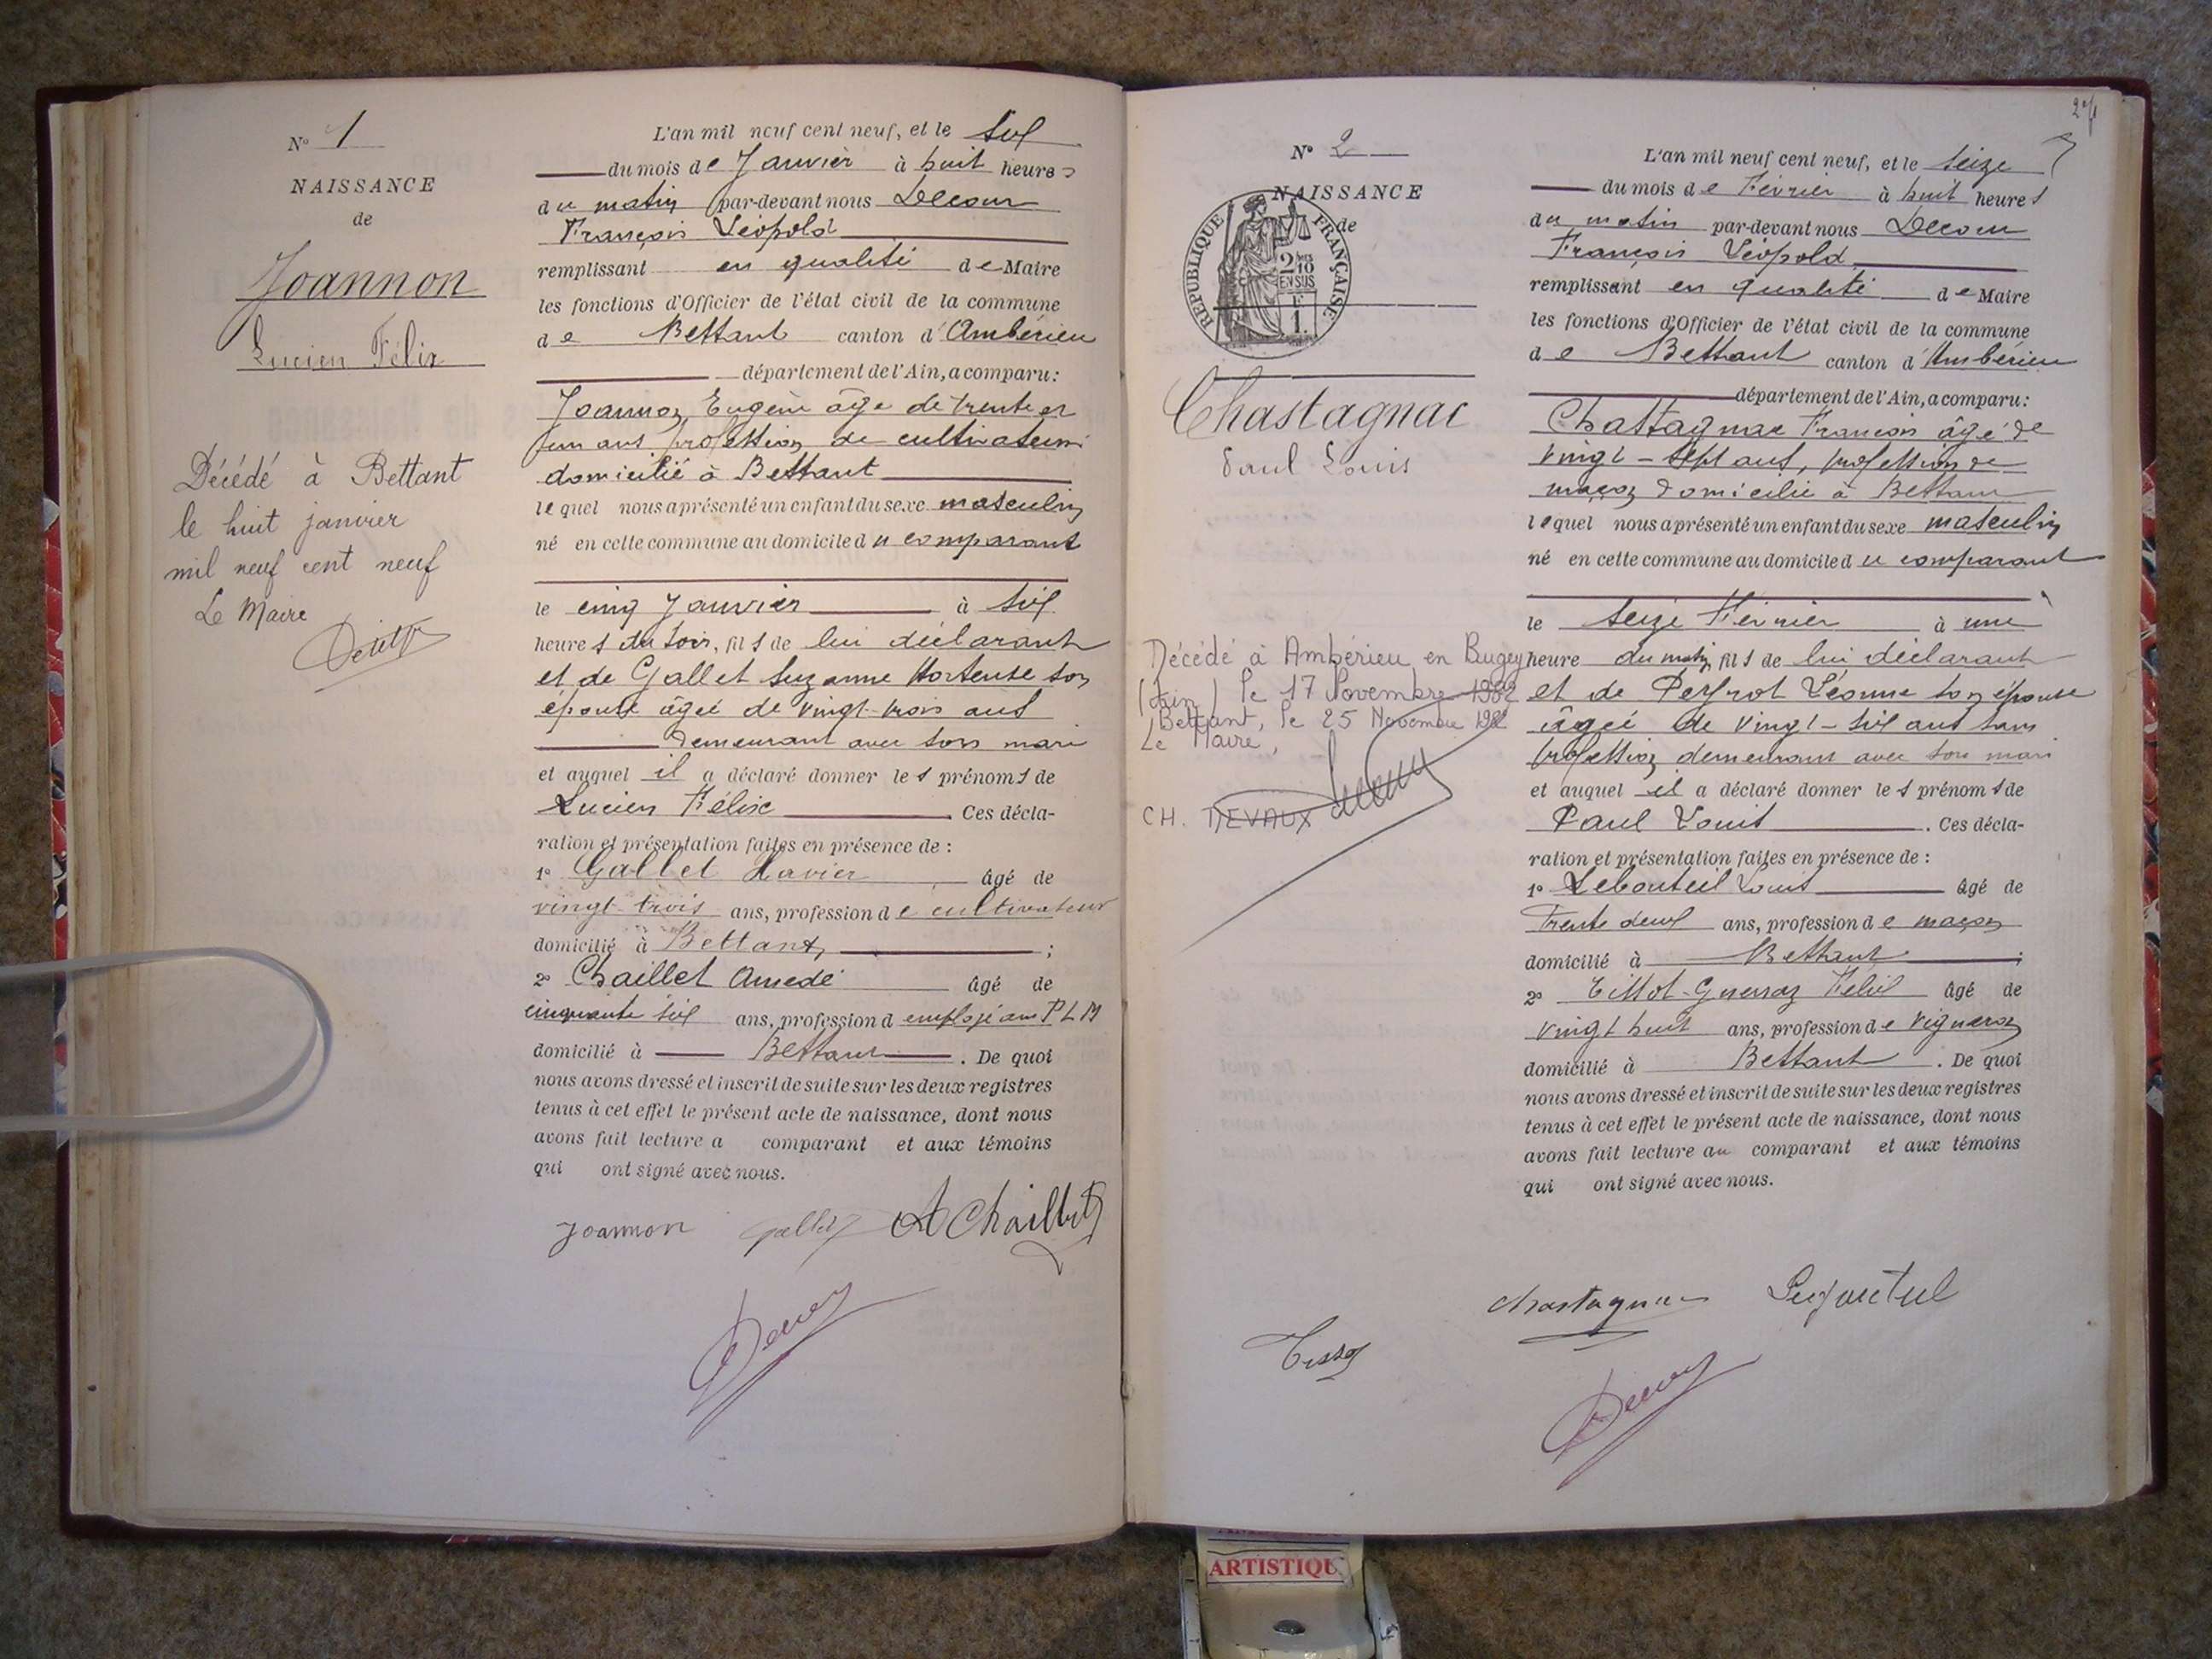 N° 1
NAISSANCE
de
Joannon
Lucien Félix
Décédé à Bettant
le huit janvier
mil neuf cent neuf
Le Maire
L'an mil neuf cent neuf, et le six
du mois de Janvier à huit heures
du matin par-devant nous Decour
François Léopold
remplissant en qualité de Maire
les fonctions d'Officier de l'état civil de la commune
de Bettant canton d'Ambérieu
département de l'Ain, a comparu:
Joannon Eugène âgé de trente et
un ans profession de cultivateur
domicilié à Bettant
lequel nous a présenté un enfant du sexe masculin
né en cette commune au domicile du comparant
le cinq Janvier à six
heures du soir, fils de lui déclarant
et de Gallet Suzanne Hortense son
épouse âgée de vingt-trois ans
demeurant avec son mari
et auquel il a déclaré donner les prénoms de
Lucien Félix Ces décla-
ration et présentation faites en présence de :
1° Gallet Xavier âgé de
vingt-trois ans, profession de cultivateur
domicilié à Bettant, ;
2° Chaillet Amedé âgé de
cinquante six ans, profession d employé au P L M
domicilié à Bettant . De quoi
nous avons dressé et inscrit de suite sur les deux registres
tenus à cet effet le présent acte de naissance, dont nous
avons fait lecture a comparant et aux témoins
qui ont signé avec nous.
Joannon Gallet A Chaillet
N° 2
NAISSANCE
de
RÉPUBLIQUE FRANÇAISE
2/10
EN SUS
F
1.
Chastagnac
Paul Louis
Décédé à Ambérieu en Bugey
(Ain) le 17 Novembre 1982
Bettant, le 25 Novembre 1982
Le Maire,
CH. DEVAUX
L'an mil neuf cent neuf, et le seize
du mois de Février à huit heures
du matin par-devant nous Decour
François Léopold
remplissant en qualité de Maire
les fonctions d'Officier de l'état civil de la commune
de Bettant canton d'Ambérieu
département de l'Ain, a comparu:
Chastagnac François âgé de
vingt-sept ans, profession de
maçon domicilié à Bettant
lequel nous a présenté un enfant du sexe masculin
né en cette commune au domicile du comparant
le seize Février à une
heure du matin fils de lui déclarant
et de Peyrot Léonne son épouse
âgée de vingt-six ans sans
profession demeurant avec son mari
et auquel il a déclaré donner les prénoms de
Paul Louis . Ces décla-
ration et présentation faites en présence de :
1° Lebouteil Louis âgé de
Trente deux ans, profession de maçon
domicilié à Bettant ;
2° Tissot-Guerraz Félix âgé de
vingt huit ans, profession de vigneron
domicilié à Bettant . De quoi
nous avons dressé et inscrit de suite sur les deux registres
tenus à cet effet le présent acte de naissance, dont nous
avons fait lecture au comparant et aux témoins
qui ont signé avec nous.
Chastagnac
Tissot
ARTISTIQU